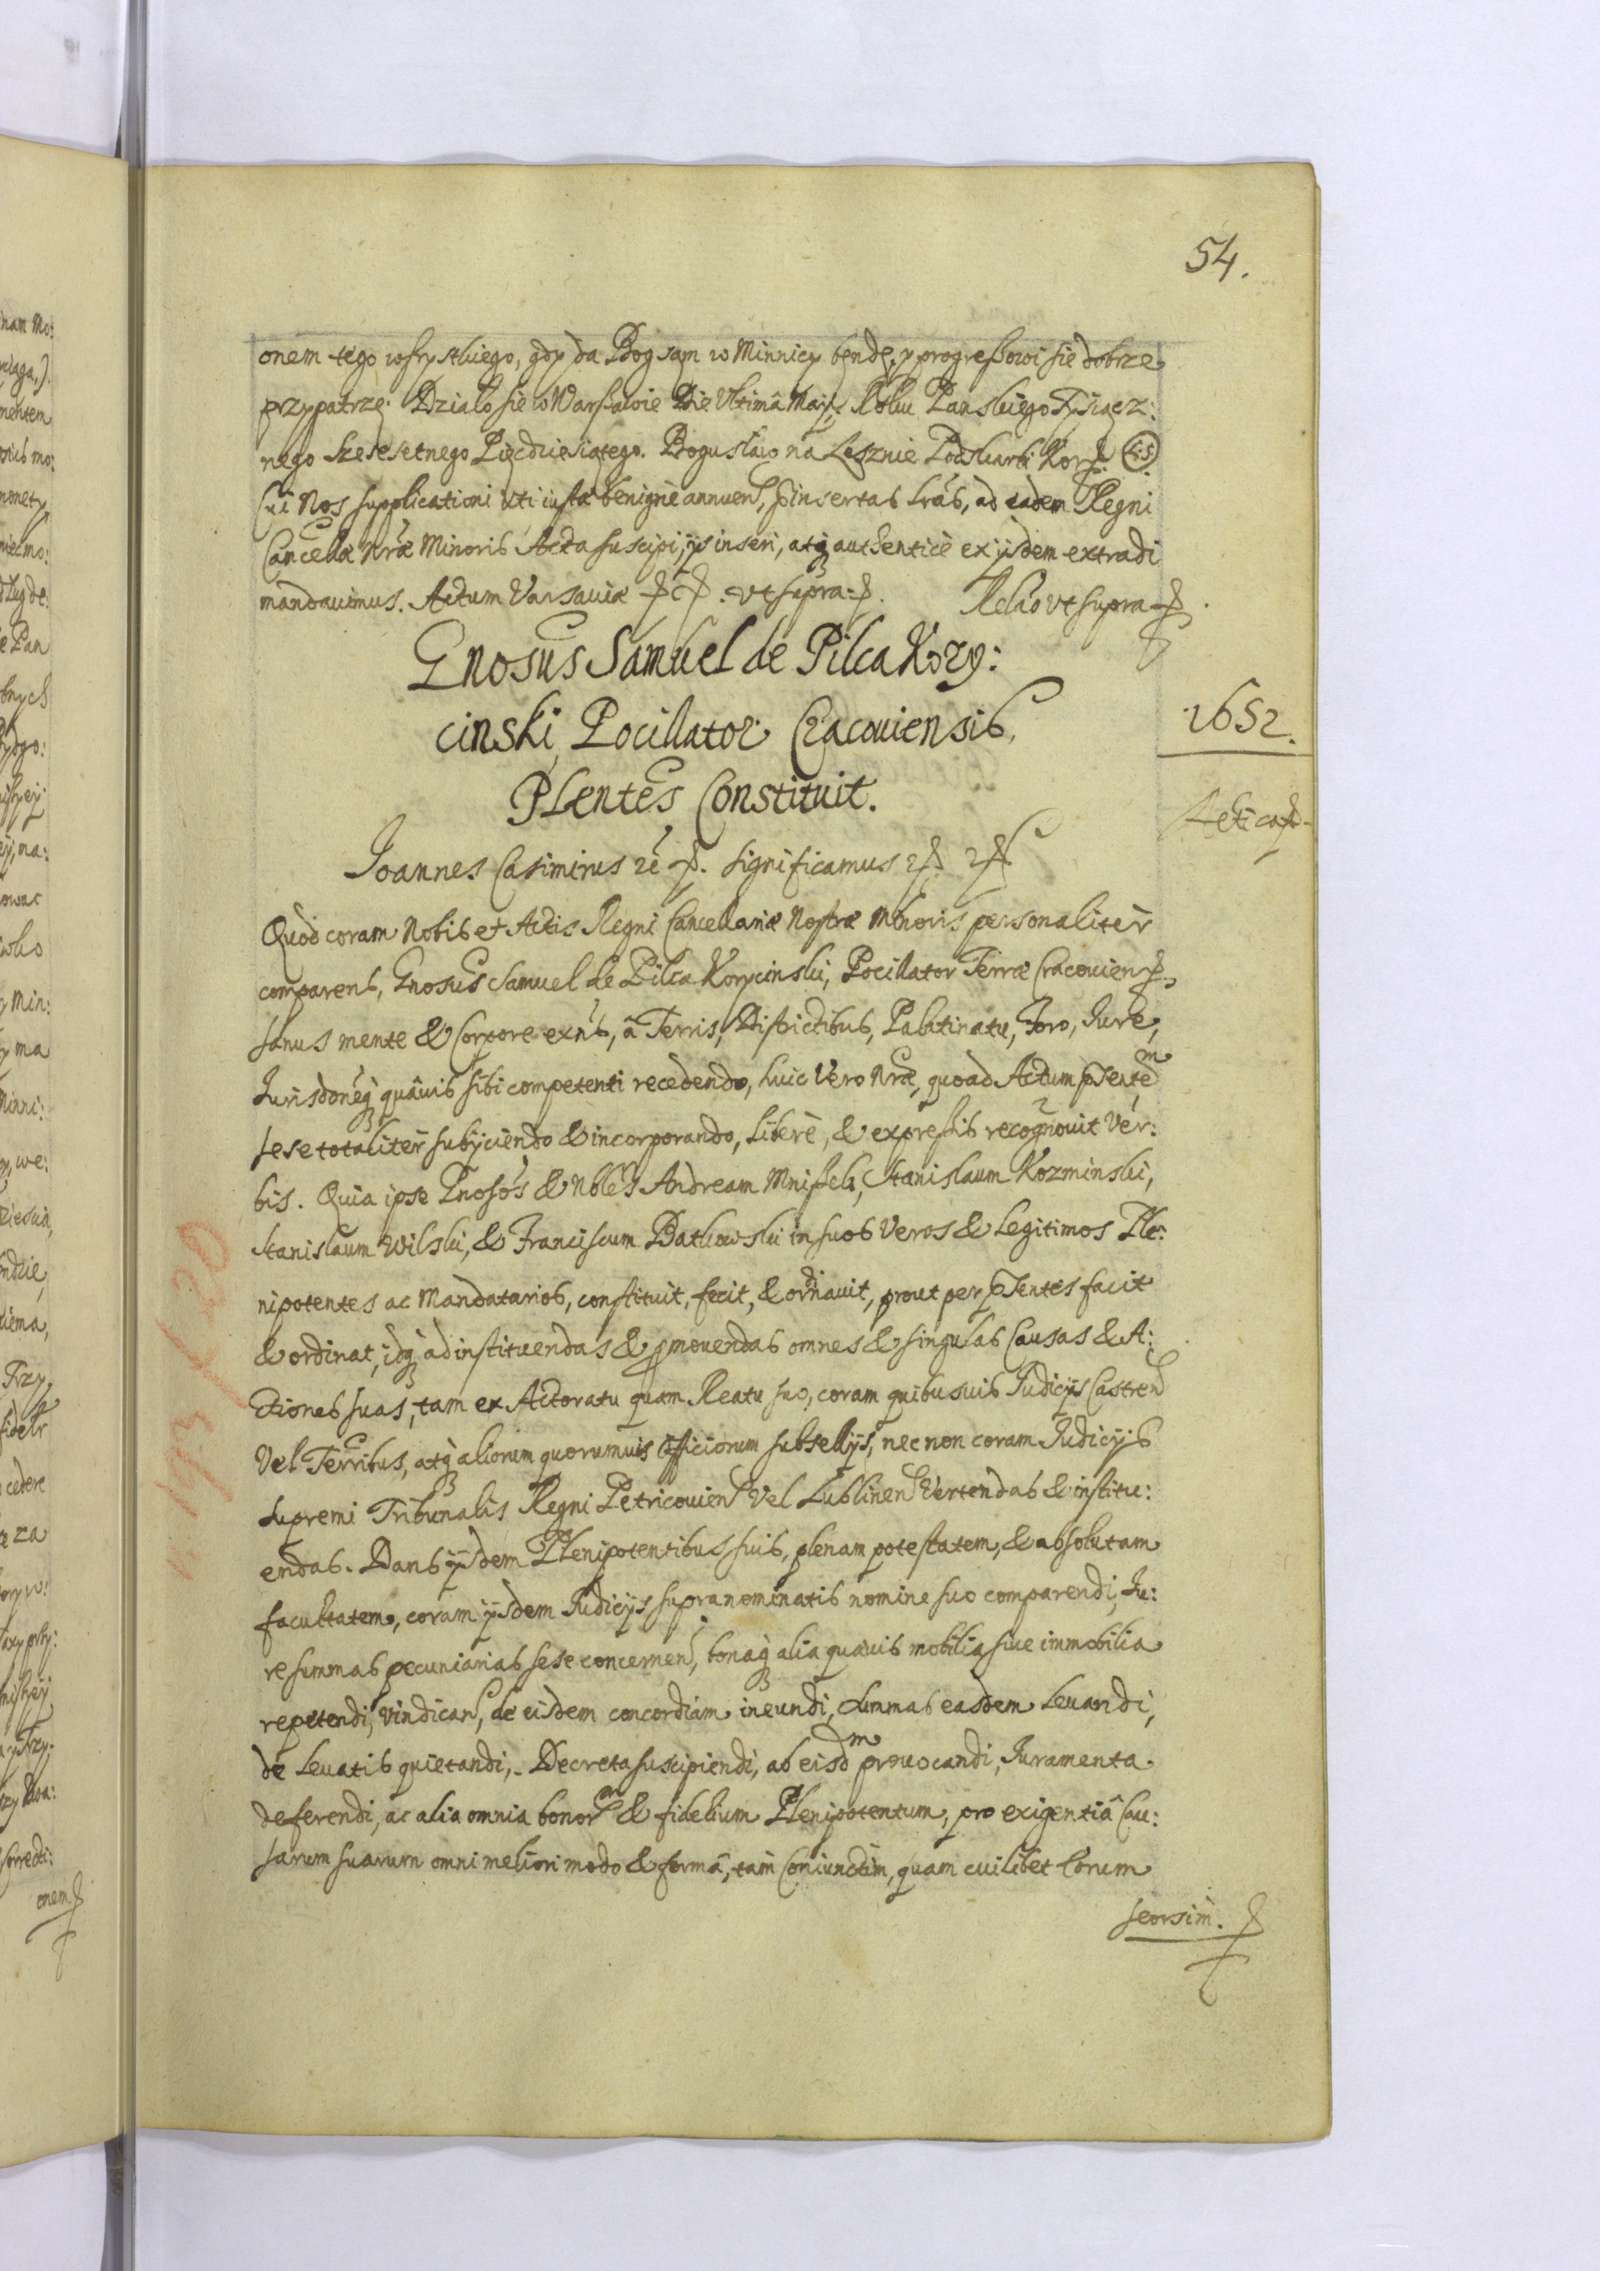 54.
onem tego wszystkiego, gdy da Bog sam w Minnicy bende, y progressowi sie dobrze
przypatrze. Działo sie w Warszawie Die Ultimâ Maij, Roku Panskiego Tysiącz:
nego Szescsetnego Pięcdziesiątego. Bogusław na Lesznie Podskarbi Kor. LS.
Cui Nos supplicationi uti iustæ benignè annuen, pinsertas Lrás, ad eadem Regni
Cancellæ Nræ Minoris Acta suscipi, ijs inseri, atq authenticè ex ijsdem extradi
mandavimus. Actum Varsaviæ ut supra. Relâo ut supra
Gnosus Samuel de Pilca Kory:
cinski, Pocillator Cracoviensis,
Plentes Constituit.
1652.
Joannes Casimirus significamus
Quòd coram Nobis et Actis Regni Cancellariæ Nostræ Minoris personalitèr
comparens, Gnosus Samuel de Pilca Korycinski, Pocillator Terræ Cracovien
sanus mente & Corpore exns, à Terris, Districtibus, Palatinatu, Foro, Jure,
Jurisdoneq quâvis sibi competenti recedendo, huic Vero Nræ, quoad Actum pntem
sese totalitèr subijciendo & incorporando, liberè, & expressis recognovit Ver:
bis. Quia ipse Gnosos & Nbles Andream Mniszek, Stanislaum Kozminski,
Stanislaum Wilski, & Franciscum Batkowski in suos Veros & Legitimos Ple:
nipotentes ac Mandatarios, constituit, fecit, & ordinavit, prout per psentes facit
& ordinat, idq ad instituendas & pmovendas omnes & singulas Causas & A:
ctiones suas, tam ex Actoratu quam Reatu suo, coram quibusvis Judicijs Castren
Vel Terribus, atq aliorum quorumvis Officiorum subsellijs, nec non coram Judicijs
Supremi Tribunalis Regni Petricovien Vel Lublinen Vertendas & institu:
endas. Dans ijsdem Plenipotentibus suis, plenam potestatem, & absolutam
facultatem, coram ijsdem Judicijs supranominatis nomine suo comparendi, Ju:
re summas pecuniarias sese concernen, bonaq alia quævis mobilia sive immobilia
repetendi, vindican, de eisdem concordiam ineundi, Summas easdem Levandi,
de Levatis quietandi, Decreta suscipiendi, ab eisdm provocandi, Juramenta
deferendi, ac alia omnia bonorm & fidelium Plenipotentum, pro exigentiâ Cau:
sarum suarum omni meliori modo & formâ, tam Coniunctim, quam cuilibet Eorum
seorsim.